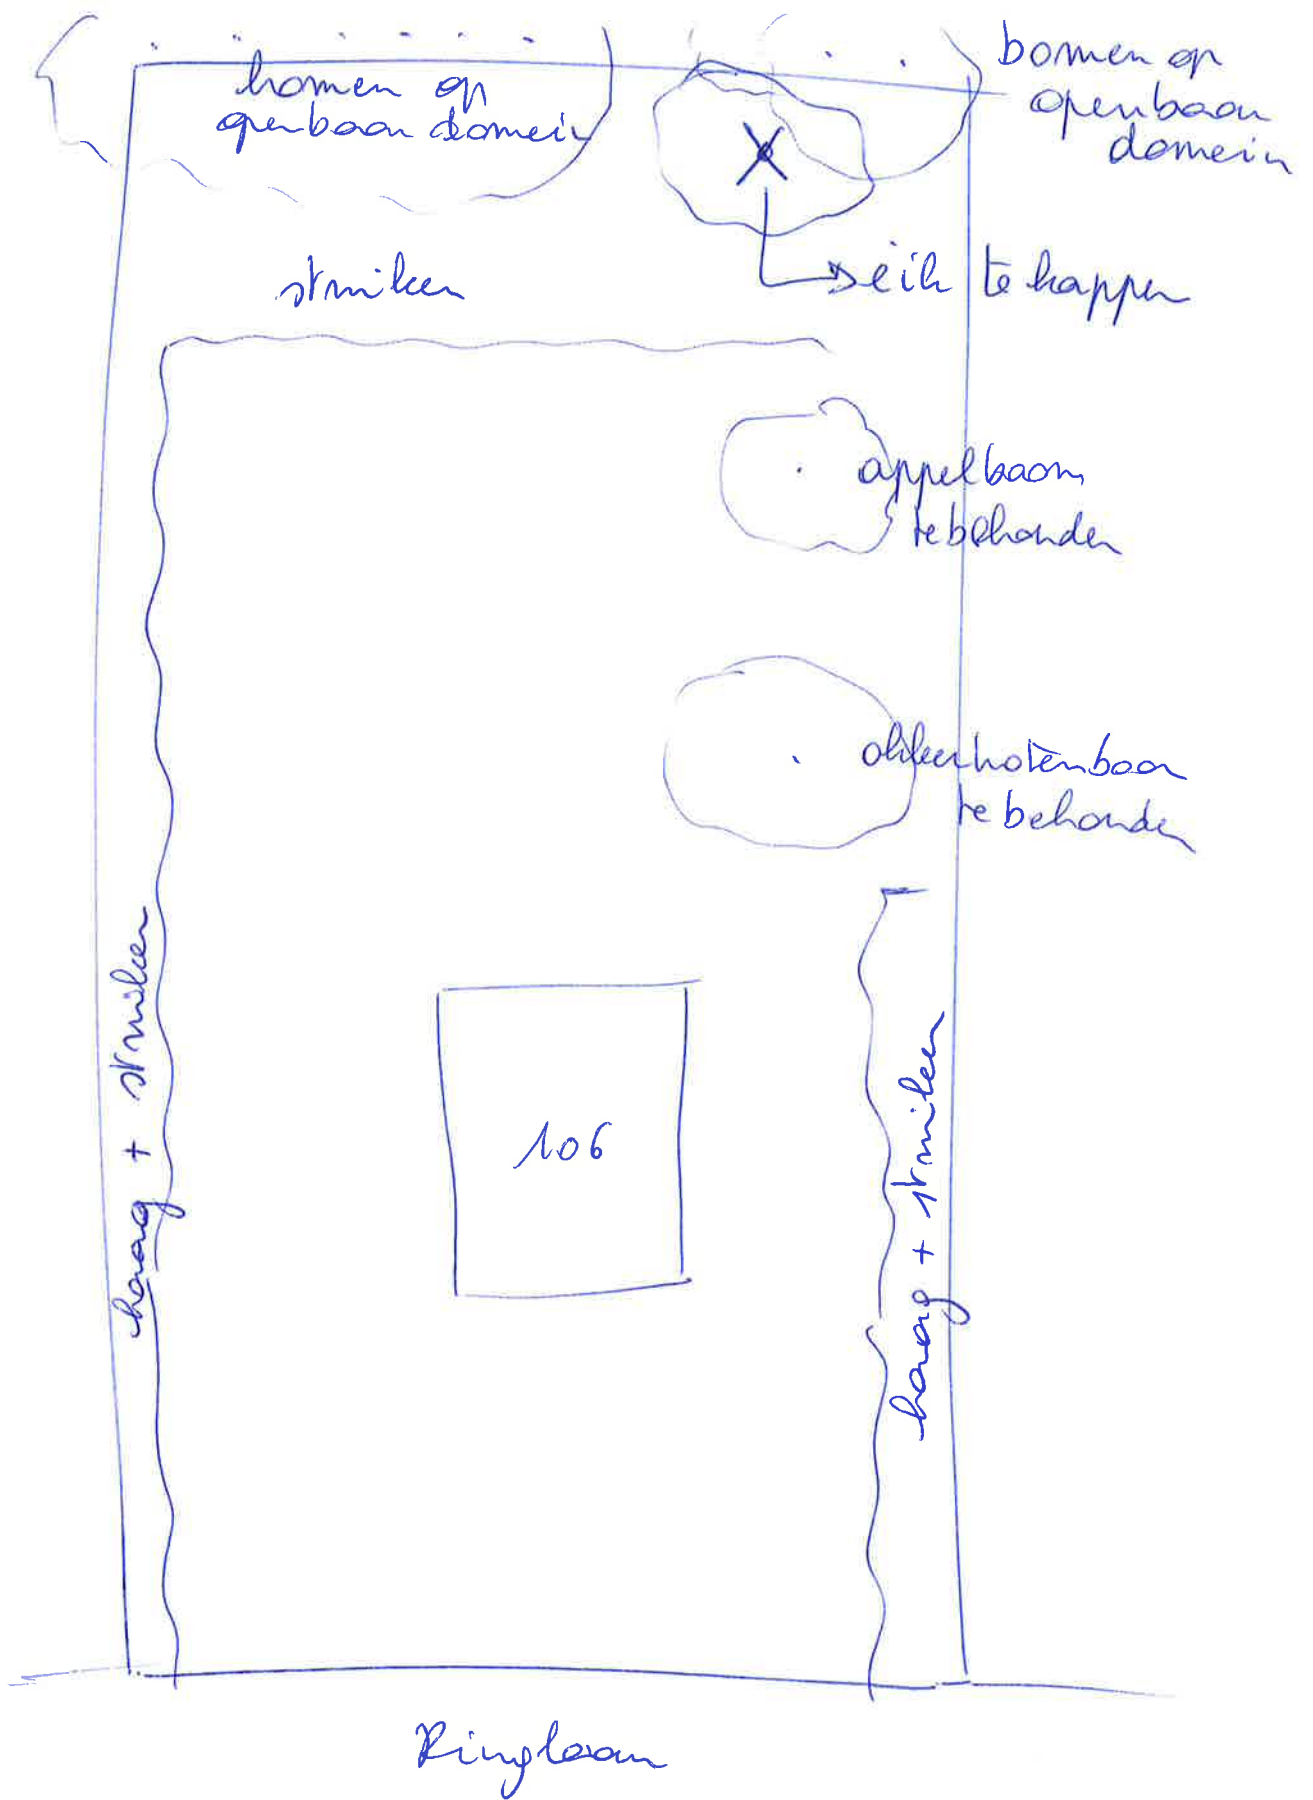 bomen op
openbaar domein
bomen op
openbaar
domein
struiken
eik te kappen
appelboom
te behouden
okkernotenboom
te behouden
haag + struiken
106
haag + struiken
Ringlaan